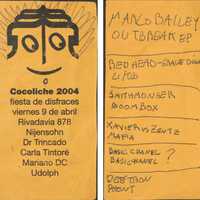 Cocoliche 2004
fiesta de disfraces
viernes 9 de abril
Rivadavia 878
Nijensohn
Dr Trincado
Carla Tintoré
Mariano DC
Udolph
MARCO BAILEY
OUTBREAK EP
RED HEAD
SMITHMONGER
BOOMBOX
XAVIER VS ZENTZ
MAFIA
BASIC CHANEL
BASICHANEL ?
POINT